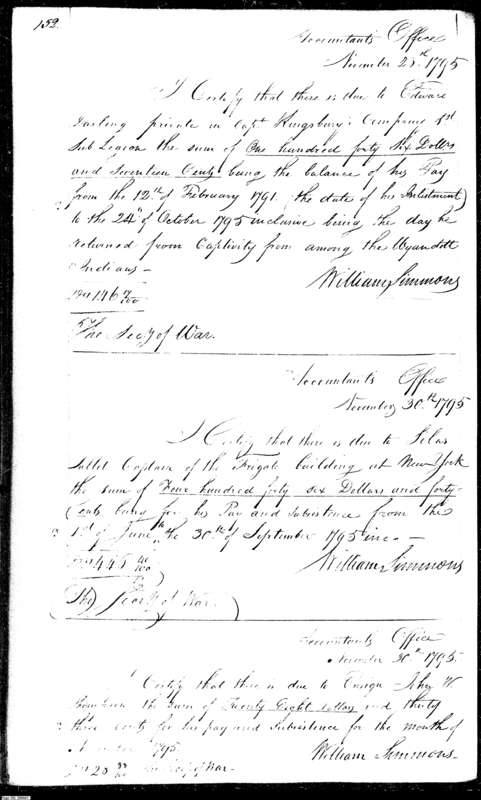 152.
Accountants Office
November 25th 1795
I Certify that there is due to Edward
Darling private in Capt Kingsbury's Company 1st
Sub Legion the sum of One hundred forty Six Dollars
and Seventeen Cents being the balance of his Pay
from the 12th of February 1791 (the date of his Inlistment)
to the 24th of October 1795 inclusive being the day he
returned from Captivity from among the Wyandott
Indians—
146 17/100
William Simmons
The Secy of War.
Accountants Office
November 30th 1795
I Certify that there is due to Silas
Captain of the Frigate building at New York
the sum of Four hundred forty six Dollars and forty
Cents being for his Pay and Subsistence from the
1st of June to the 30th of September 1795 inc.—
40/100
William Simmons
The Secy of War.
Accountants Office
November 30th 1795.
I Certify that there is due to Ensign John W.
the sum of Twenty Eight dollars and thirty
three cents for his pay and Subsistence for the month of
November 1795.
28 33/100 The Secy of War—
William Simmons—